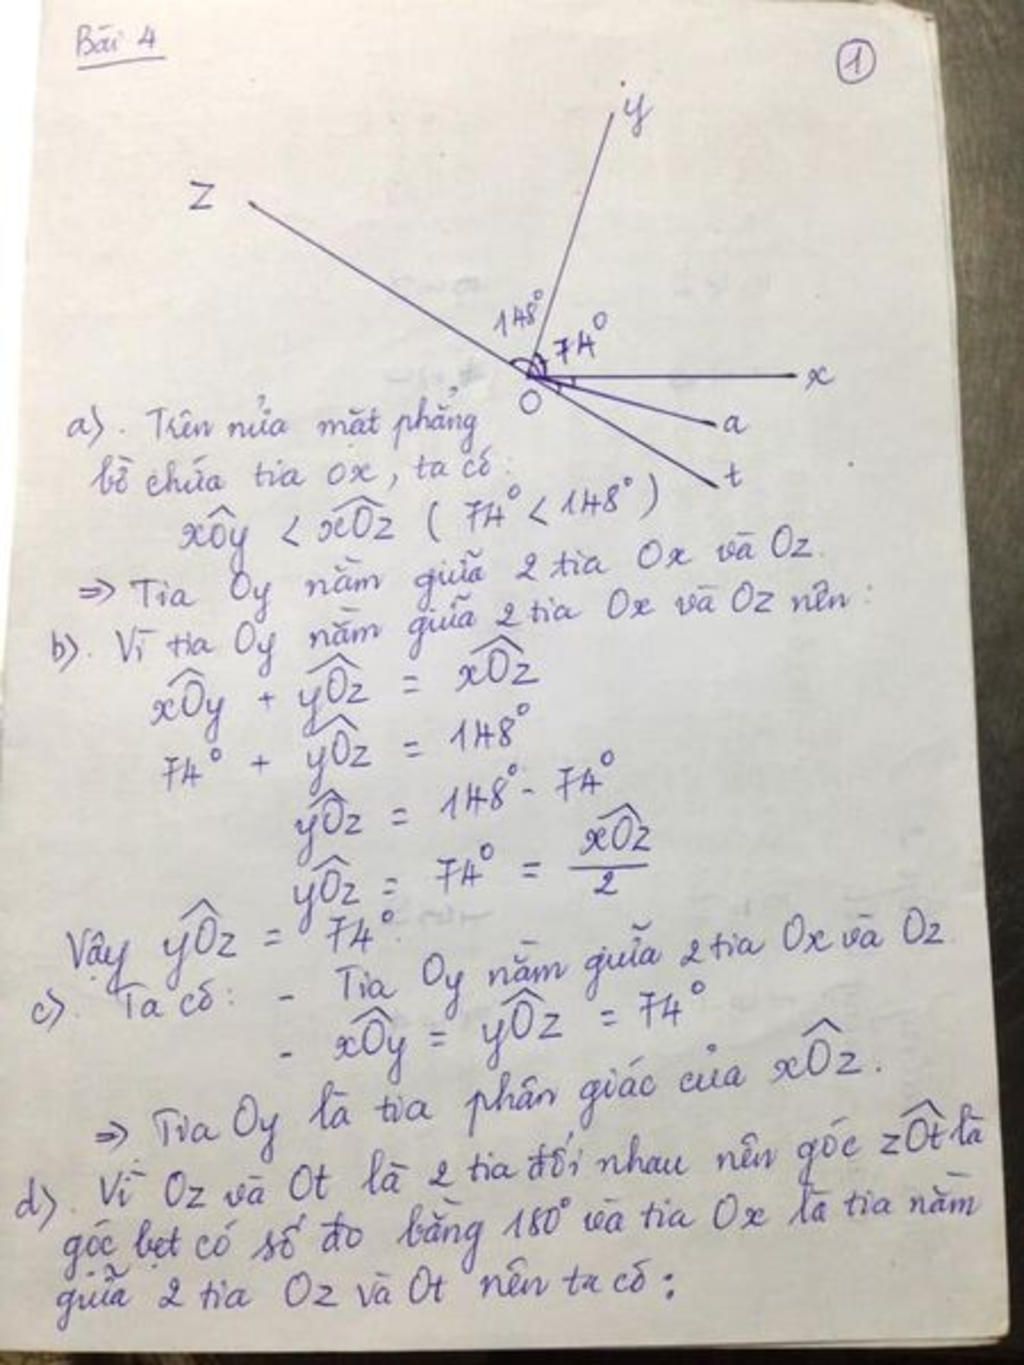 Bài 4
1
y
z
148°
74°
x
O
a
t
a). Trên nửa mặt phẳng
bờ chứa tia Ox, ta có:
xÔy < xÔz ( 74° < 148° )
=> Tia Oy nằm giữa 2 tia Ox và Oz.
b). Vì tia Oy nằm giữa 2 tia Ox và Oz nên:
xÔy + yÔz = xÔz
74° + yÔz = 148°
yÔz = 148° - 74°
yÔz = 74° = xÔz / 2
Vậy yÔz = 74°.
c). Ta có: - Tia Oy nằm giữa 2 tia Ox và Oz
- xÔy = yÔz = 74°
=> Tia Oy là tia phân giác của xÔz.
d). Vì Oz và Ot là 2 tia đối nhau nên góc zÔt là
góc bẹt có số đo bằng 180° và tia Ox là tia nằm
giữa 2 tia Oz và Ot nên ta có: